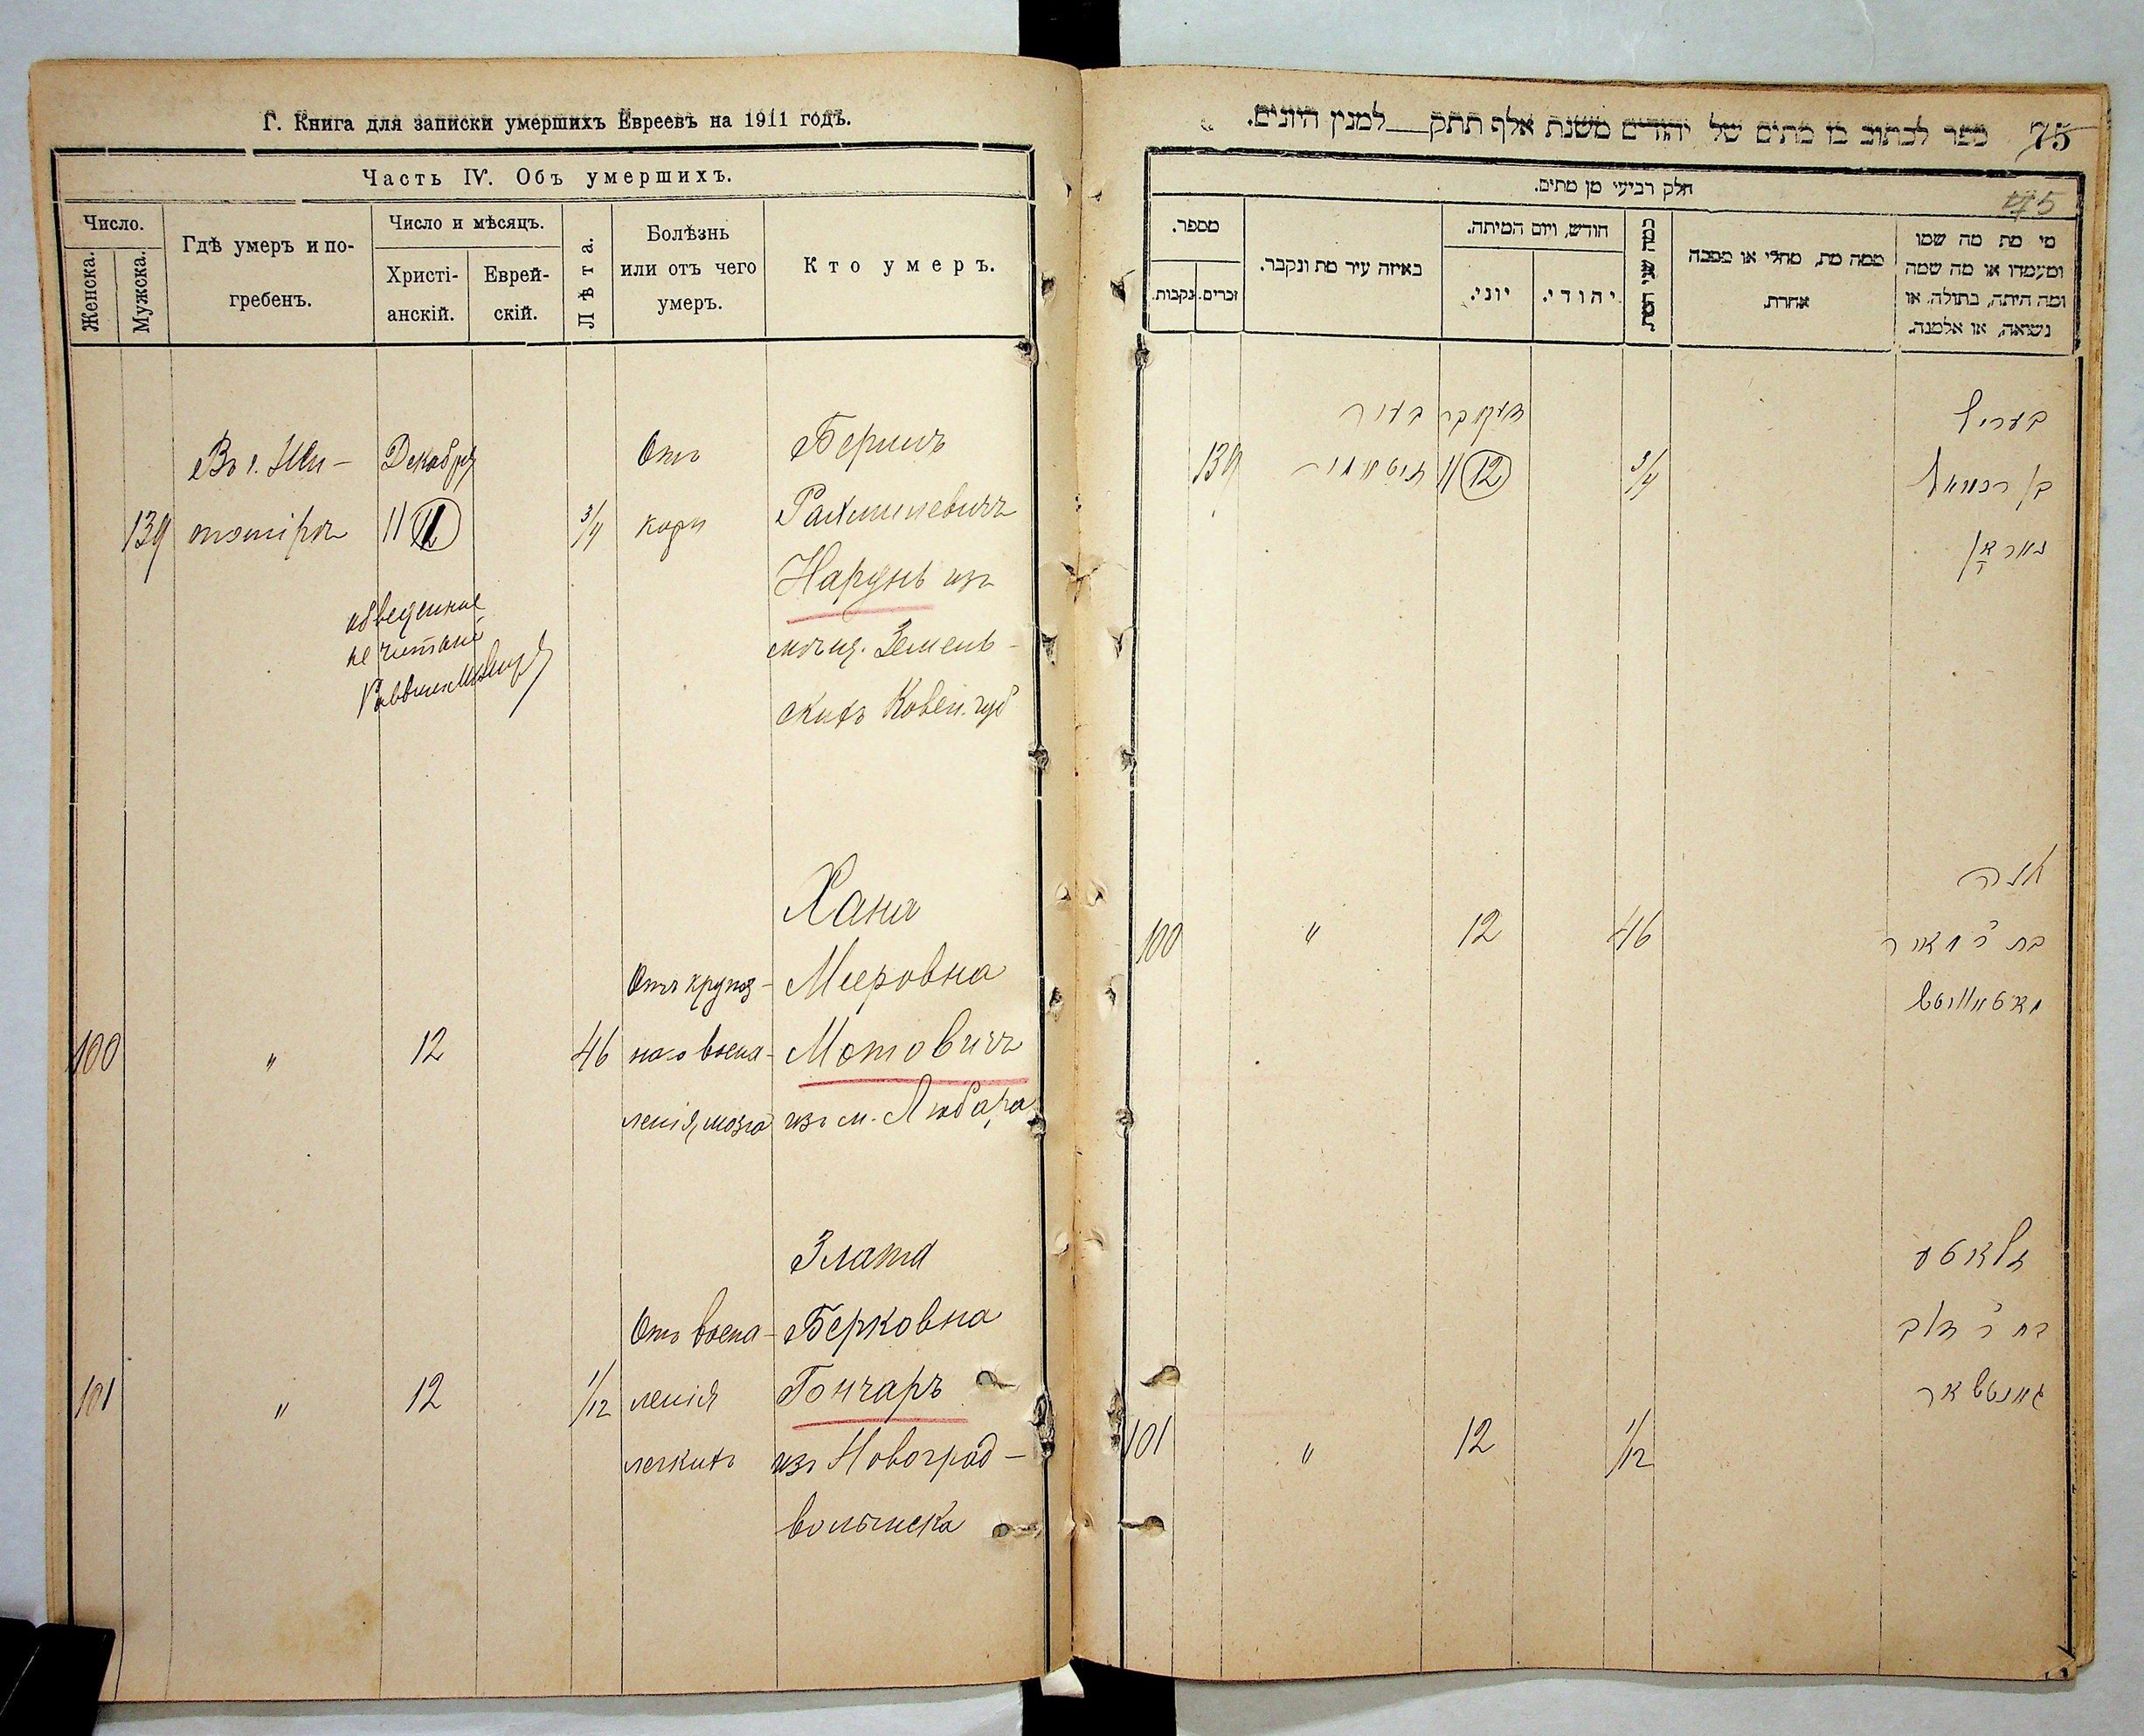 Г. Книга для записки умершихъ Евреевъ на 1911 годъ.
Часть IV. Объ умершихъ.
Число.
Женска.
Мужска.
Гдѣ умеръ и по-
гребенъ.
Число и мѣсяцъ.
Христі-
анскій.
Еврей-
скій.
Лѣта.
Болѣзнь
или отъ чего
умеръ.
Кто умеръ.
139
Въ г. Жи-
томірѣ
Декабря
11 (12)
3/4
Отъ
кори
Берилъ
Рахмилевичъ
Нардунъ изъ
Земель-
скихъ Ковен. губ
обведенное
не читать
Раввин
100
"
12
46
Отъ крупоз-
наго воспа-
ленія мозга
Хана
Мееровна
Мотовичъ
изъ м. Любара
101
"
12
1/12
Отъ воспа-
ленія
легкихъ
Злата
Берковна
Гончаръ
изъ Новоград-
волынска
75
ספר לכתוב בו מתים של יהודים משנת אלף תתק__למנין היונים.
75
חלק רביעי מן מתים.
מספר.
נקבות.
זכרים.
באיזה עיר מת ונקבר.
חודש, ויום המיתה.
יוני.
יהודי.
כמה שני המת
ממה מת, מחלי או מסבה
אחרת.
מי מת מה שמו
ומעמדו או מה שמה
ומה היתה, בתולה, או
נשואה, או אלמנה.
139
זיטאמיר
דעקאבר
11 (12)
3/4
בעריל
בן רחמיאל
100
"
12
46
חנה
בת ר' מאיר
מאטאוויטש
101
"
12
1/12
זלאטע
בת ר' דוב
גאנטשאר